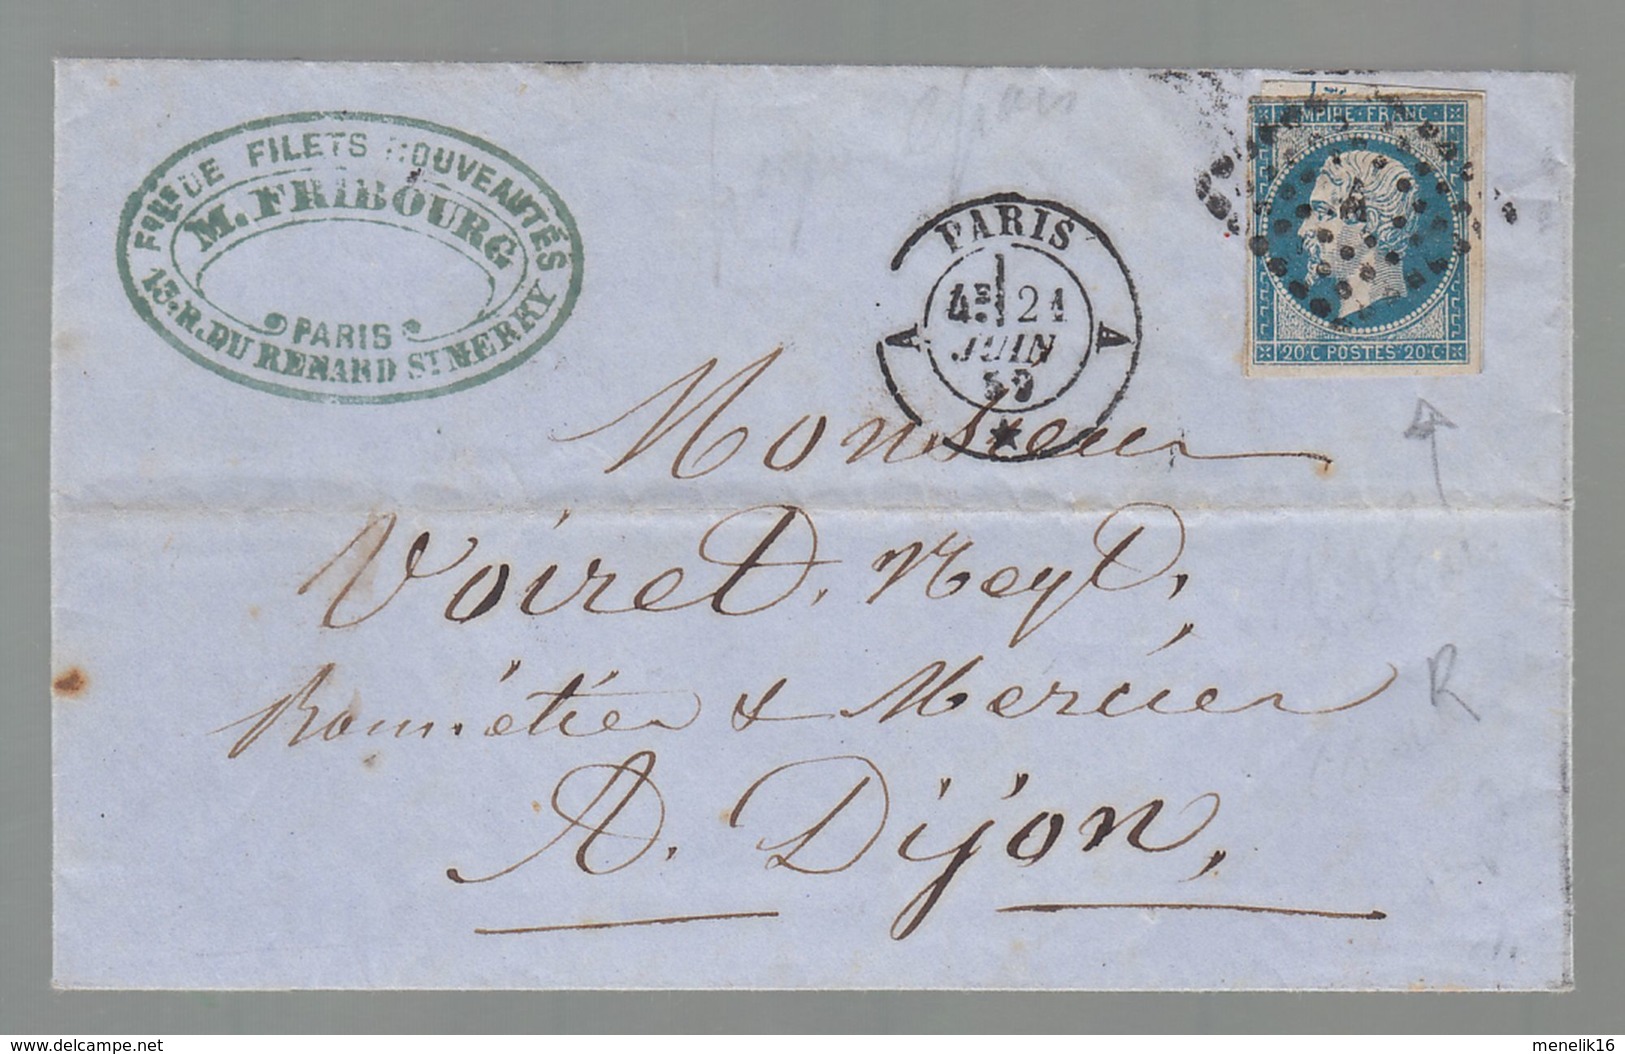 Fque DE FILETS NOUVEAUTÉS
M. FRIBOURG
PARIS
13, R. DU RENARD ST MERRY
PARIS
21
JUIN
59
A A
EMPIRE · FRANC ·
20 ᶜ POSTES 20 ᶜ
Monsieur
Voiret. Neyt,
Bonnétier & Mercier
A. Dijon,
R
www.delcampe.net
menelik16